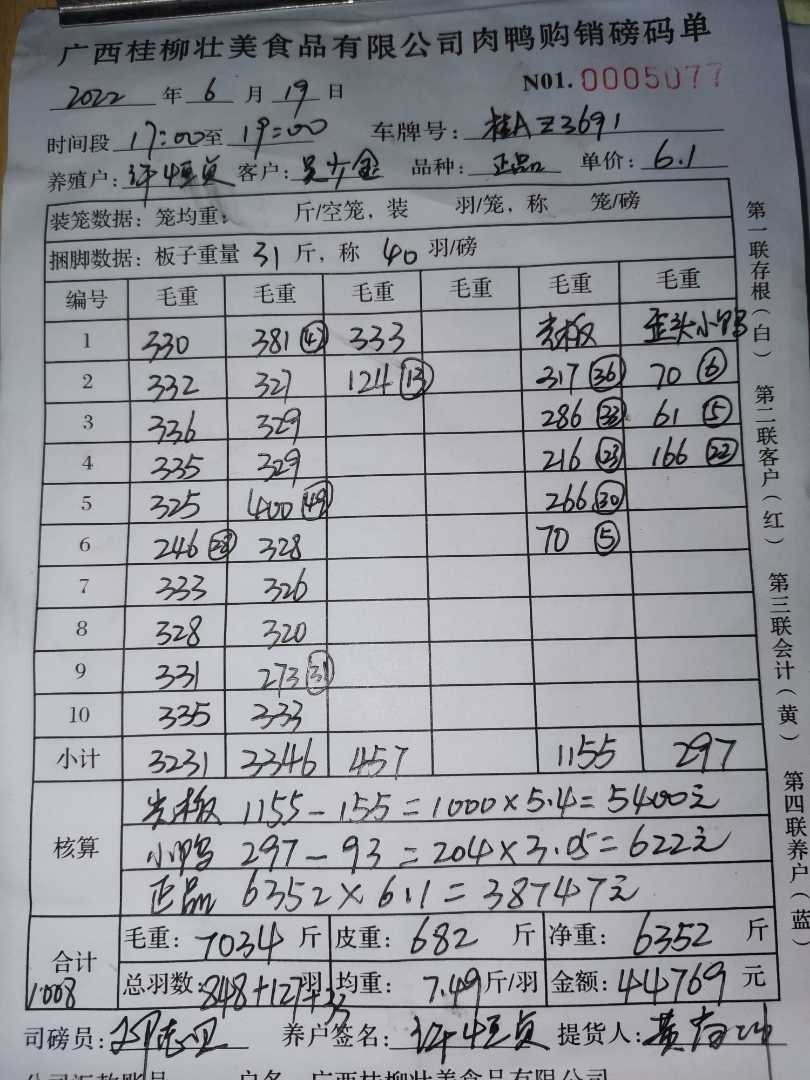 广西桂柳壮美食品有限公司肉鸭购销磅码单
2022 年 6 月 19 日 N01. 0005077
时间段 17:00至 19:00 车牌号: 桂AZ3691
养殖户: 许恒贞 客户: 吴少金 品种: 正品 单价: 6.1
装笼数据: 笼均重: 斤/空笼, 装 羽/笼, 称 笼/磅
捆脚数据: 板子重量 31 斤, 称 40 羽/磅
编号 毛重 毛重 毛重 毛重 毛重 毛重
1 330 381 333 光板 歪头小鸭
2 332 327 124 (13) 317 (36) 70 (6)
3 336 329 286 (33) 61 (5)
4 335 329 216 (23) 166 (22)
5 325 400 (49) 266 (30)
6 246 328 70 (5)
7 333 326
8 328 320
9 331 273 (31)
10 335 333
小计 3231 3346 457 1155 297
核算
光板 1155-155=1000×5.4=5400元
小鸭 297-93=204×3.05=622元
正品 6352×6.1=38747元
合计 1008
毛重: 7034 斤 皮重: 682 斤 净重: 6352 斤
总羽数: 848+127+33 羽 均重: 7.49 斤/羽 金额: 44769 元
司磅员: 养户签名: 许恒贞 提货人:
第一联存根(白) 第二联客户(红) 第三联会计(黄) 第四联养户(蓝)
公司汇款账号 户名: 广西桂柳壮美食品有限公司